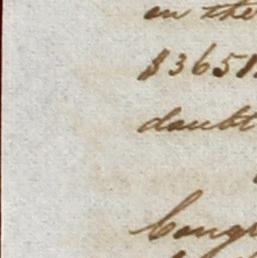 on the
$3651
doubt
Congr